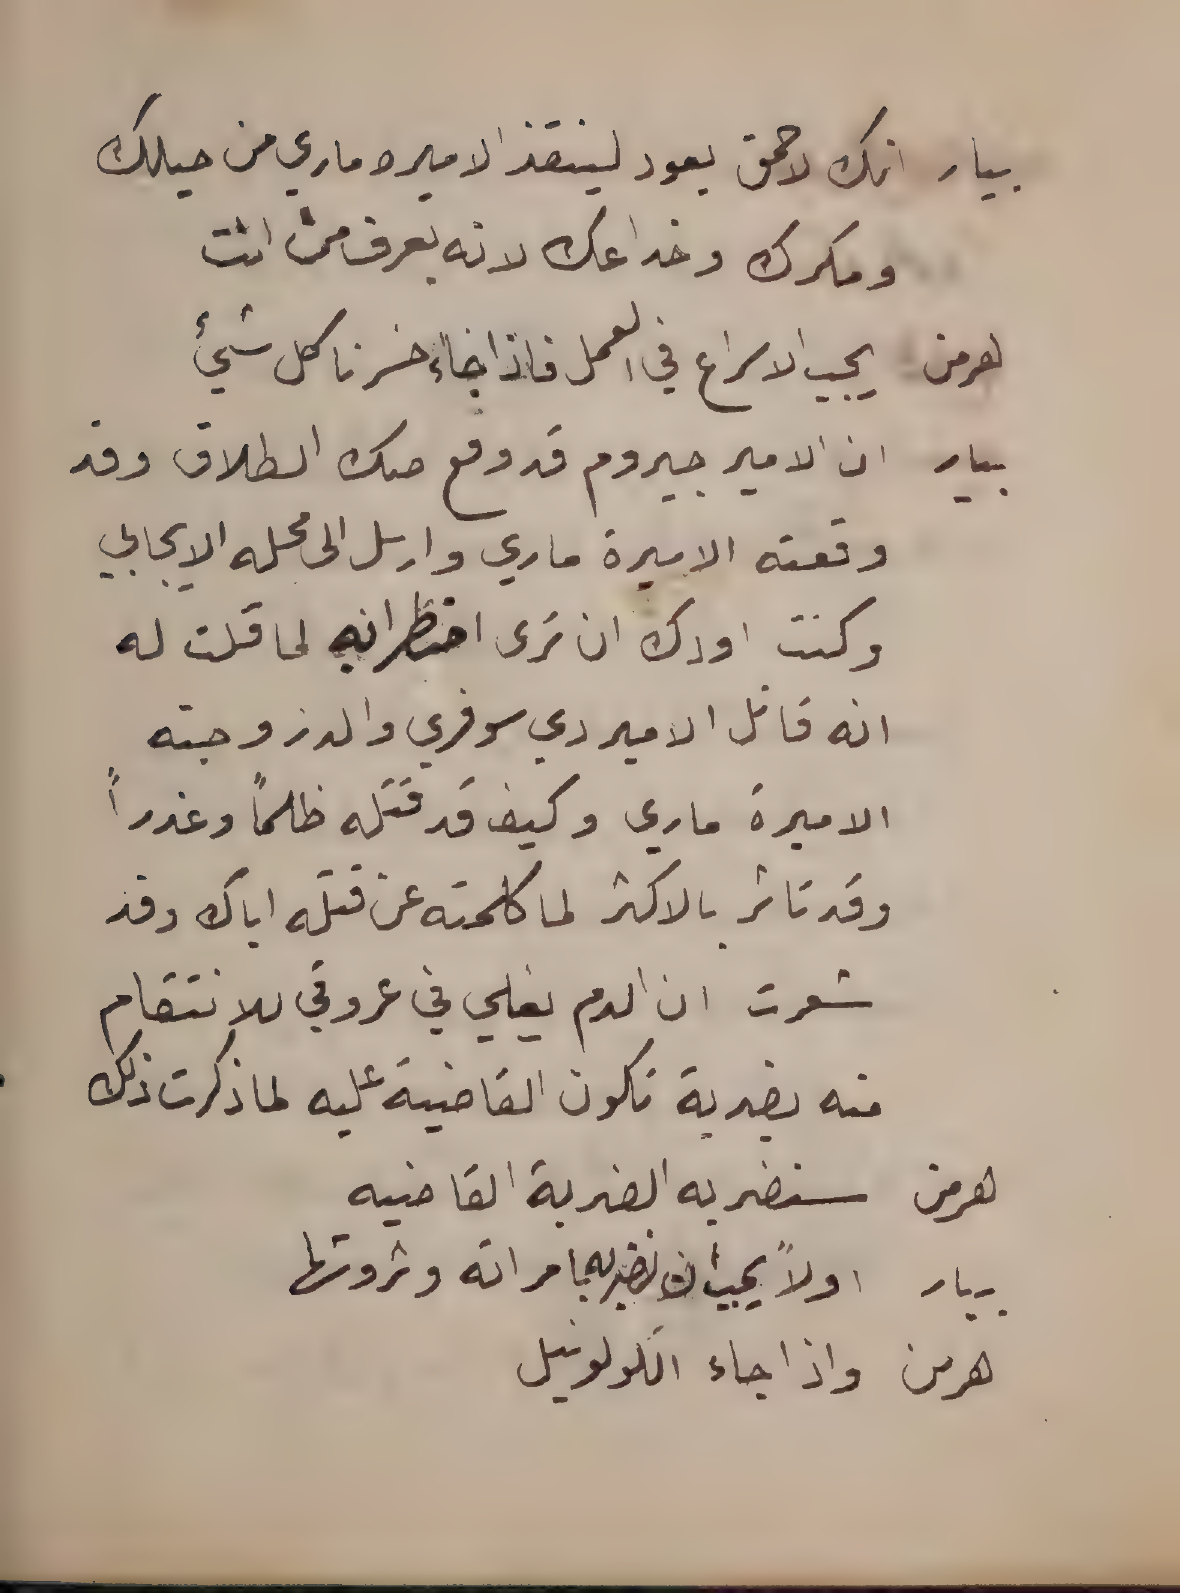 بيار انك لاحمق يعود لينقذ الاميره ماري من حيلك
ومكرك وخداعك لانه يعرف من انت
هرمن يجب الاسراع في العمل فاذا جاء خسرنا كل شيئ
بيار ان الامير جيروم قد وقع صك الطلاق وقد
وقعته الاميرة ماري وارسل الى محله الايجابي
وكنت اودك ان ترى اضطرابه لما قلت له
انه قاتل الامير دي سوفري والد زوجته
الاميرة ماري وكيف قد قتله ظلماً وغدراً
وقد تاثر بالاكثر لما كلمته عن قتله اباك وقد
شعرت ان الدم يغلي في عروقي للانتقام
منه بضربة تكون القاضية عليه لما ذكرت ذلك
هرمن سنضربه الضربة القاضيه
بيار اولاً يجب ان نضربه بامراته وثروتها
هرمن واذا جاء الكولونيل